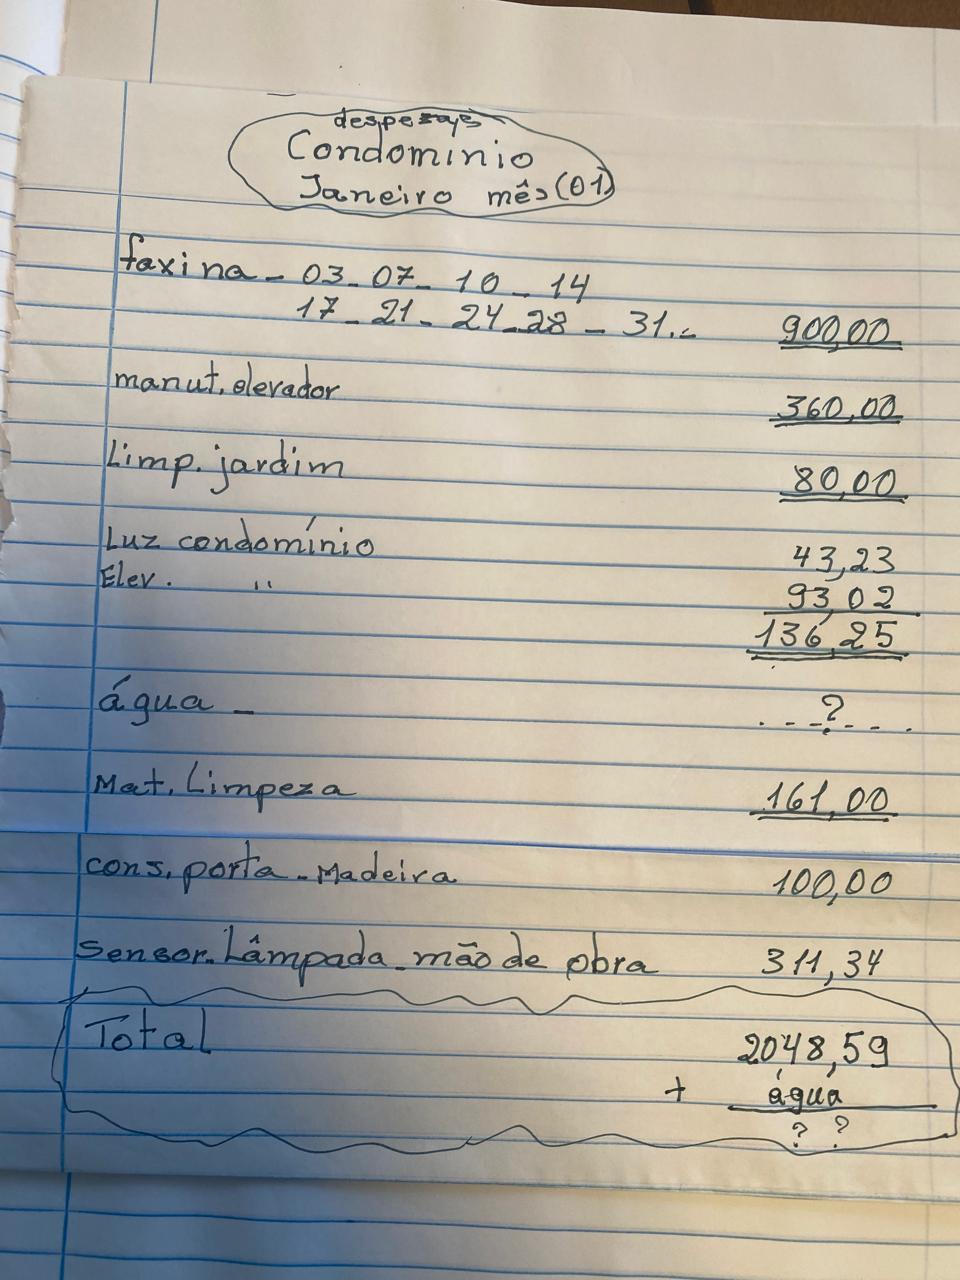 despesas
Condominio
Janeiro mês (01)
faxina - 03 - 07 - 10 - 14
17 - 21 - 24 - 28 - 31.- 900,00
manut. elevador 360,00
Limp. jardim 80,00
Luz condomínio 43,23
Elev. " 93,02
136,25
água - . - - ? - - - .
Mat. Limpeza 161,00
cons. porta - Madeira 100,00
Sensor. Lâmpada - mão de obra 311,34
Total 2048,59
+ água
? ?